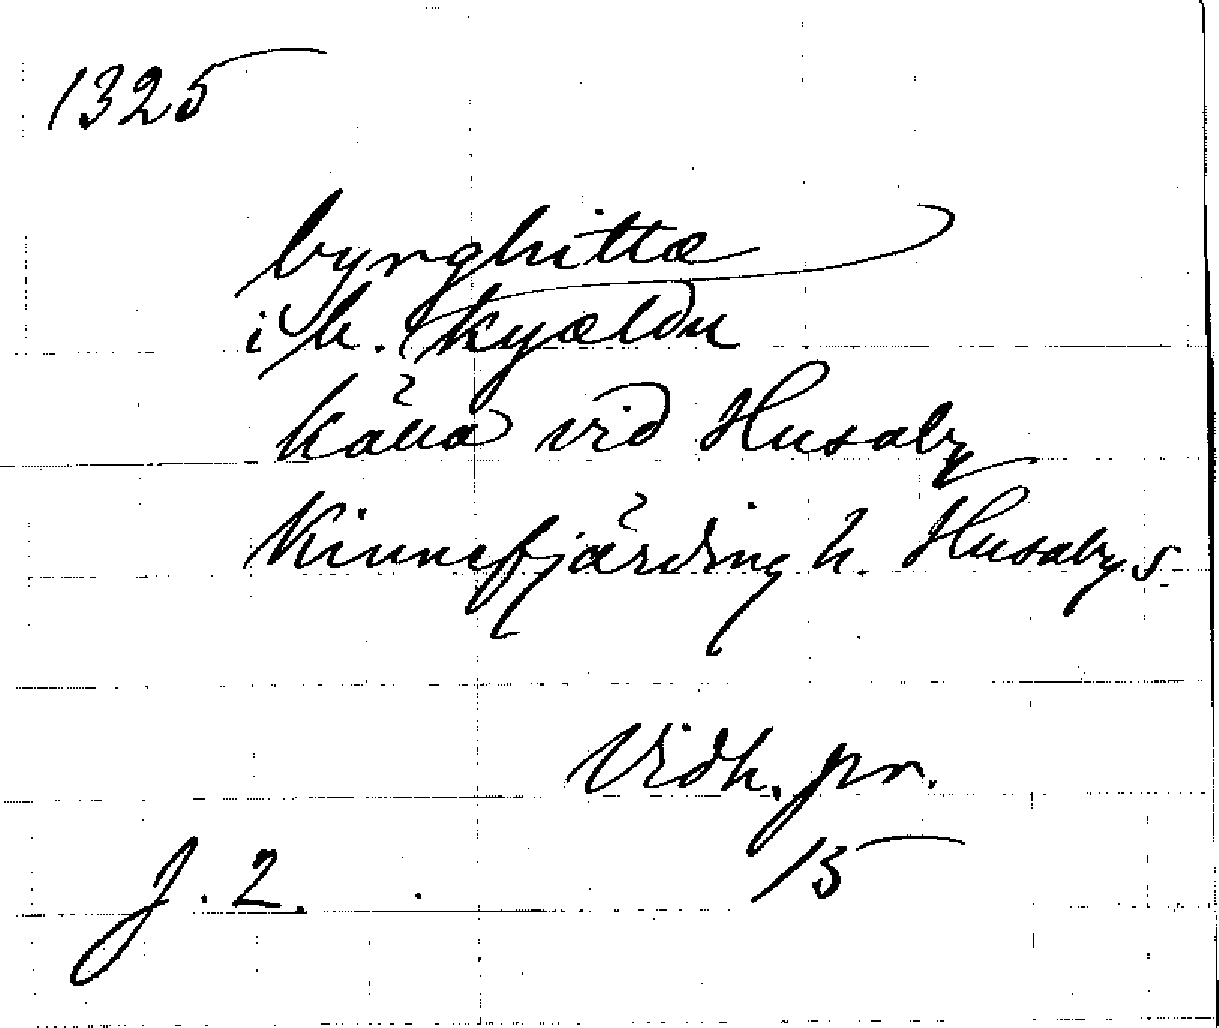 1325
byrghittæ
i b. kyældu
källa vid Husaby
Kinnefjärding h. Husaby s.
Vidh. pr.
J. 2. 15